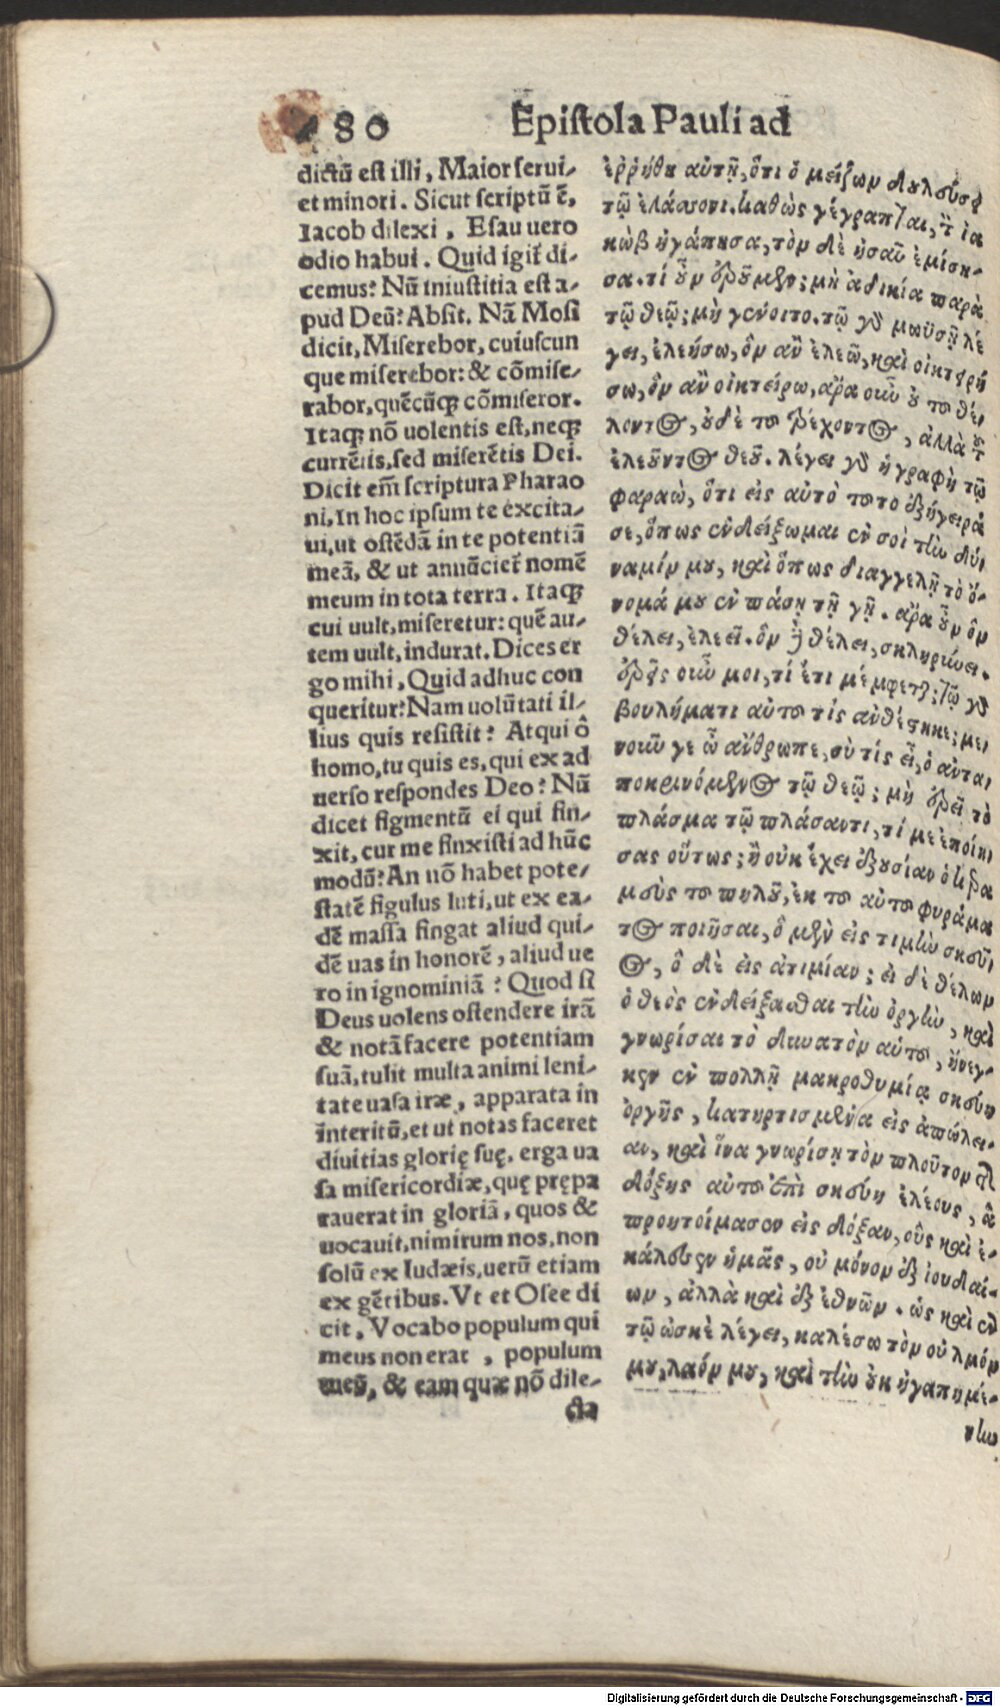 80 Epistola Pauli ad
dictū est illi, Maior serui-
et minori. Sicut scriptū ē,
Iacob dilexi, Esau uero
odio habui. Quid igit̄ di-
cemus? Nū iniustitia est a-
pud Deū? Absit. Nā Mosi
dicit, Miserebor, cuiuscun
que miserebor: & cōmise-
rabor, quēcūq; cōmiseror.
Itaq; nō uolentis est, neq;
currētis, sed miserētis Dei.
Dicit em̄ scriptura Pharao
ni, In hoc ipsum te excita-
ui, ut ostēdā in te potentiā
meā, & ut annūciet̄ nomē
meum in tota terra. Itaq;
cui uult, miseretur: quē au-
tem uult, indurat. Dices er
go mihi, Quid adhuc con
queritur? Nam uolūtati il-
lius quis resistit? Atqui ô
homo, tu quis es, qui ex ad
uerso respondes Deo? Nū
dicet figmentū ei qui fin-
xit, cur me finxisti ad hūc
modū? An nō habet pote-
statē figulus luti, ut ex ea-
dē massa fingat aliud qui-
dē uas in honorē, aliud ue
ro in ignominiā? Quod si
Deus uolens ostendere irā
& notā facere potentiam
suā, tulit multa animi leni-
tate uasa iræ, apparata in
interitū, et ut notas faceret
diuitias glorię suę, erga ua
sa misericordiæ, quę prępa
rauerat in gloriā, quos &
uocauit, nimirum nos, non
solū ex Iudæis, uerū etiam
ex gētibus. Vt et Osee di
cit, Vocabo populum qui
meus non erat, populum
meū, & eam quæ nō dile-
cta
ἐῤῥήθη αὐτῇ, ὅτι ὁ μείζων δουλεύσει
τῷ ἐλάσσονι. καθὼς γέγραπται, τὸν ἰα
κὼβ ἠγάπησα, τὸν δὲ ἠσαῦ ἐμίση-
σα. τί οὖν ἐροῦμεν; μὴ ἀδικία παρὰ
τῷ θεῷ; μὴ γένοιτο. τῷ γὰρ μωϋσῇ λέ
γει, ἐλεήσω, ὃν ἂν ἐλεῶ, καὶ οἰκτειρή
σω, ὃν ἂν οἰκτείρω, ἄρα οὖν οὐ τοῦ θέ
λοντος, οὐδὲ τοῦ τρέχοντος, ἀλλὰ τοῦ
ἐλεοῦντος θεοῦ. λέγει γὰρ ἡ γραφὴ τῷ
φαραὼ, ὅτι εἰς αὐτὸ τοῦτο ἐξήγειρά
σε, ὅπως ἐνδείξωμαι ἐν σοὶ τὴν δύ-
ναμίν μου, καὶ ὅπως διαγγελῇ τὸ ὄ-
νομά μου ἐν πάσῃ τῇ γῇ. ἄρα οὖν ὃν
θέλει, ἐλεεῖ. ὃν δὲ θέλει, σκληρύνει.
ἐρεῖς οὖν μοι, τί ἔτι μέμφεται; τῷ γὰρ
βουλήματι αὐτοῦ τίς ἀνθέστηκε; με
νοῦν γε ὦ ἄνθρωπε, σὺ τίς εἶ, ὁ ἀντα
ποκρινόμενος τῷ θεῷ; μὴ ἐρεῖ τὸ
πλάσμα τῷ πλάσαντι, τί με ἐποίη
σας οὕτως; ἢ οὐκ ἔχει ἐξουσίαν ὁ κερα
μεὺς τοῦ πηλοῦ, ἐκ τοῦ αὐτοῦ φυράμα
τος ποιῆσαι, ὃ μὲν εἰς τιμὴν σκεῦ
ος, ὃ δὲ εἰς ἀτιμίαν; εἰ δὲ θέλων
ὁ θεὸς ἐνδείξασθαι τὴν ὀργὴν, καὶ
γνωρίσαι τὸ δυνατὸν αὐτοῦ, ἤνεγ-
κεν ἐν πολλῇ μακροθυμίᾳ σκεύη
ὀργῆς, κατηρτισμένα εἰς ἀπώλει-
αν, καὶ ἵνα γνωρίσῃ τὸν πλοῦτον τῆς
δόξης αὐτοῦ ἐπὶ σκεύη ἐλέους, ἃ
προητοίμασεν εἰς δόξαν, οὓς καὶ ἐ-
κάλεσεν ἡμᾶς, οὐ μόνον ἐξ ἰουδαί-
ων, ἀλλὰ καὶ ἐξ ἐθνῶν. ὡς καὶ ἐν
τῷ ὡσηὲ λέγει, καλέσω τὸν οὐ λαόν
μου, λαόν μου, καὶ τὴν οὐκ ἠγαπημέ-
νην
Digitalisierung gefördert durch die Deutsche Forschungsgemeinschaft - DFG